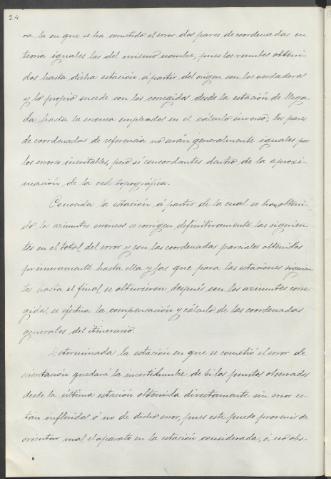 24
ra la en que se ha cometido el error dos pares de coordenadas en
teoria iguales las del mismo nombre, pues los rumbos obteni-
dos hasta dicha estación á partir del origen son los verdaderos
y lo propio sucede con los corregidos desde la estación de llega-
da, hasta la erronea empleados en el cálculo inverso; los pares
de coordenadas de referencia no serán generalmente iguales por
los errores inevitables, pero si concordantes dentro de la aproxi-
mación de la red topográfica.
Conocida la estación á partir de la cual se han obteni-
do los azimutes erroneos se corrigen definitivamente las siguien-
tes en el total del error y con las coordenadas parciales obtenidas
primeramente hasta ella y las que para las estaciones siguien-
tes hasta el final se obtuvieron después con los azimutes corre-
gidos, se efectua la compensación y cálculo de las coordenadas
generales del itinerario.
Determinada la estación en que se cometió el error de
orientación quedará la incertidumbre de si los puntos observados
desde la última estación obtenida directamente sin error es-
tan influidos ó no de dicho error, pues este puede provenir de
orientar mal el aparato en la estación considerada, ó no obs-